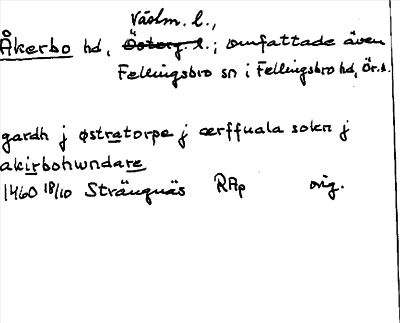 Västm. l.,
Åkerbo hd, Österg. l.; omfattade även
Fellingsbro sn i Fellingsbro hd, Ör. l.
gardh j østratorpe j ærffuala sokn j
akirbohwndare
1460 18/10 Strängnäs RAp orig.